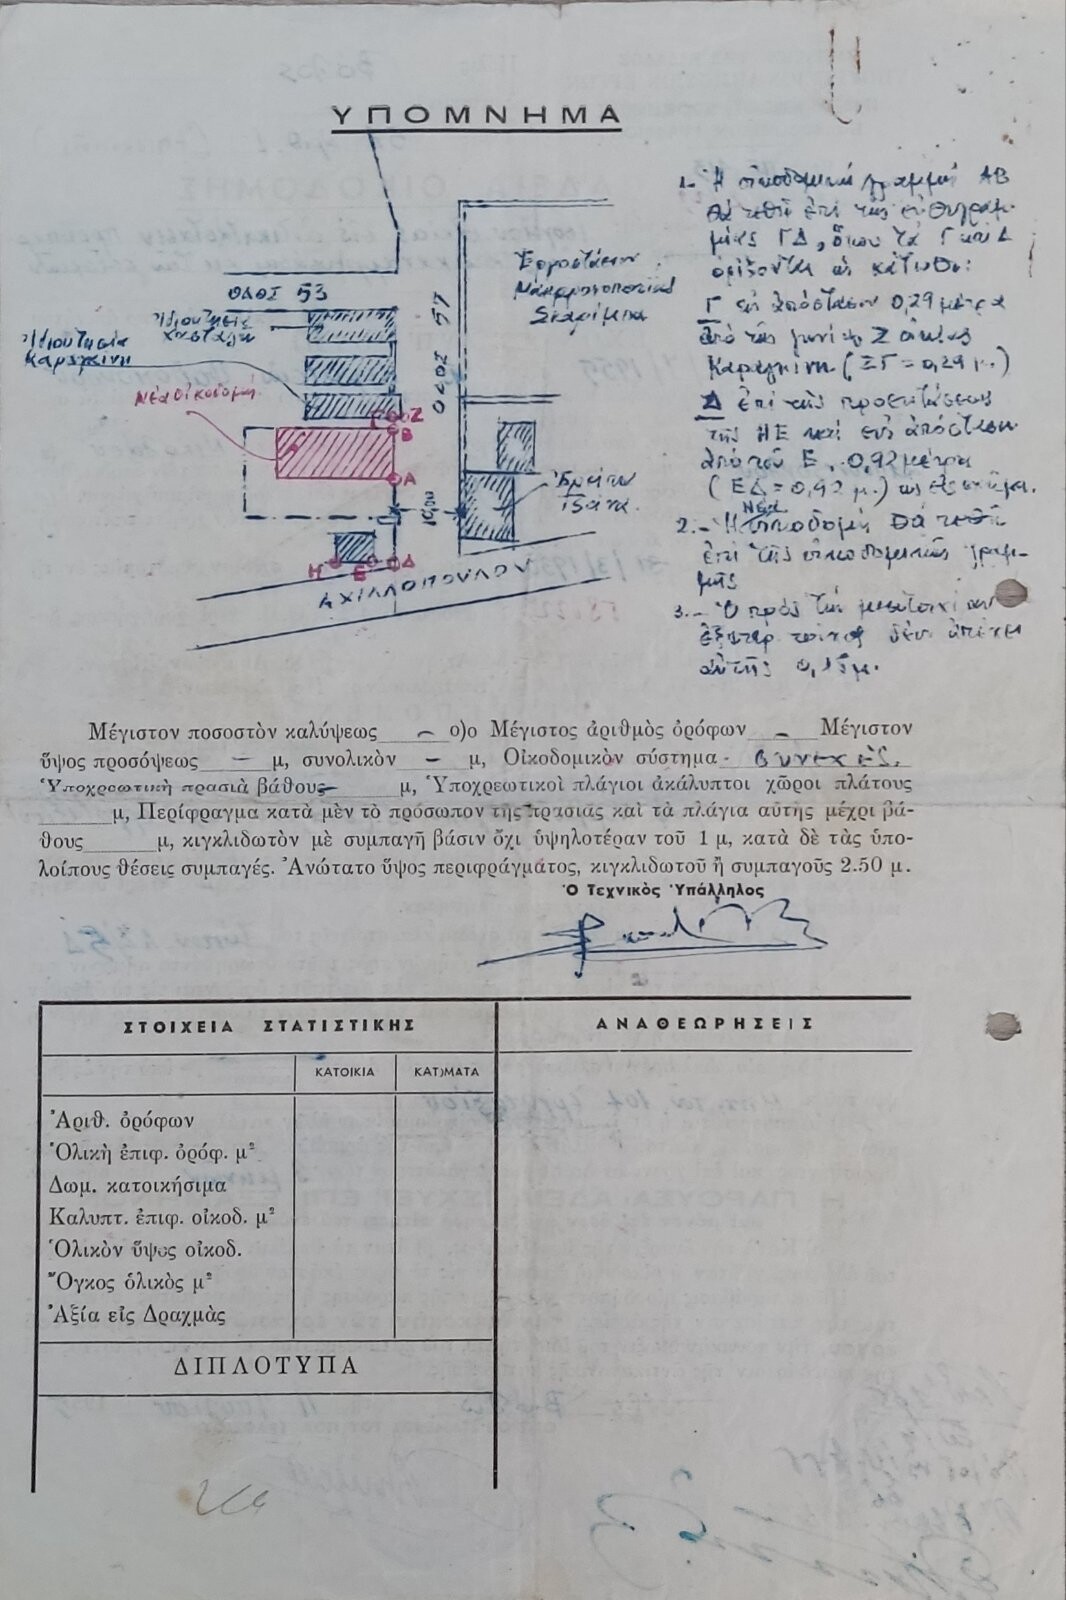 ΥΠΟΜΝΗΜΑ
ΟΔΟΣ 53
Ἰδιοκτησία
Ἰδιοκτησία
Καραγκίνη
Νέα Οἰκοδομή
ΟΔΟΣ 57
Ἐργοστάσιον
Μακαρονοποιίας
Σκαρίμπα
Ζ
Β
Α
10,00
Ἐρείπια
Η
Ε
Δ
ΑΧΙΛΛΟΠΟΥΛΟΥ
1.- Ἡ οἰκοδομική γραμμή ΑΒ
θά τεθῆ ἐπί τῆς εὐθυγραμ-
μίας ΓΔ, ὅπου τά Γ καί Δ
ὁρίζονται ὡς κάτωθι:
Γ εἰς ἀπόστασιν 0,29 μέτρα
ἀπό τῆς γωνίας Ζ οἰκίας
Καραγκίνη (ΞΓ = 0,29 μ.)
Δ ἐπί τῆς προεκτάσεως
τῆς ΗΕ καί εἰς ἀπόστασιν
ἀπό τοῦ Ε, 0,92 μέτρα
(ΕΔ = 0,92 μ.) ὡς
2.- Ἡ Νέα οἰκοδομή θά τεθῆ
ἐπί τῆς οἰκοδομικῆς γραμ-
μῆς
3.- Ὁ πρός τήν μεσοτοιχίαν
ἐξωτερ. τοῖχος δέον ἀπέχει
αὐτῆς 0,15 μ.
Μέγιστον ποσοστὸν καλύψεως — ο)ο Μέγιστος ἀριθμὸς ὀρόφων — Μέγιστον
ὕψος προσόψεως — μ, συνολικὸν — μ, Οἰκοδομικὸν σύστημα συνεχές.
Ὑποχρεωτικὴ πρασιὰ βάθους — μ, Ὑποχρεωτικοὶ πλάγιοι ἀκάλυπτοι χῶροι πλάτους
μ, Περίφραγμα κατὰ μὲν τὸ πρόσωπον τῆς πρασιᾶς καὶ τὰ πλάγια αὐτῆς μέχρι βά-
θους μ, κιγκλιδωτὸν μὲ συμπαγῆ βάσιν ὄχι ὑψηλοτέραν τοῦ 1 μ, κατὰ δὲ τὰς ὑπο-
λοίπους θέσεις συμπαγές. Ἀνώτατο ὕψος περιφράγματος, κιγκλιδωτοῦ ἢ συμπαγοῦς 2.50 μ.
Ὁ Τεχνικὸς Ὑπάλληλος
ΣΤΟΙΧΕΙΑ ΣΤΑΤΙΣΤΙΚΗΣ
ΑΝΑΘΕΩΡΗΣΕΙΣ
ΚΑΤΟΙΚΙΑ ΚΑΤ)ΜΑΤΑ
Ἀριθ. ὀρόφων
Ὁλικὴ ἐπιφ. ὀρόφ. μ²
Δωμ. κατοικήσιμα
Καλυπτ. ἐπιφ. οἰκοδ. μ²
Ὁλικὸν ὕψος οἰκοδ.
Ὄγκος ὁλικὸς μ²
Ἀξία εἰς Δραχμὰς
ΔΙΠΛΟΤΥΠΑ